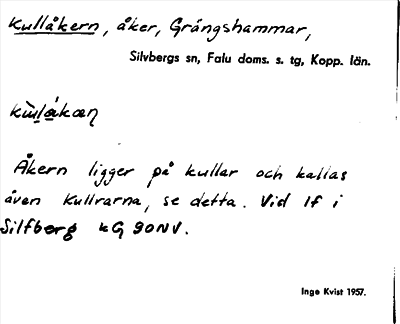 Kullåkern, åker, Grängshammar,
Silvbergs sn, Falu doms. s. tg, Kopp. län.
Åkern ligger på kullar och kallas
även Kullrarna, se detta. Vid 1f i
Silfberg kG 90NV.
Inge Kvist 1957.